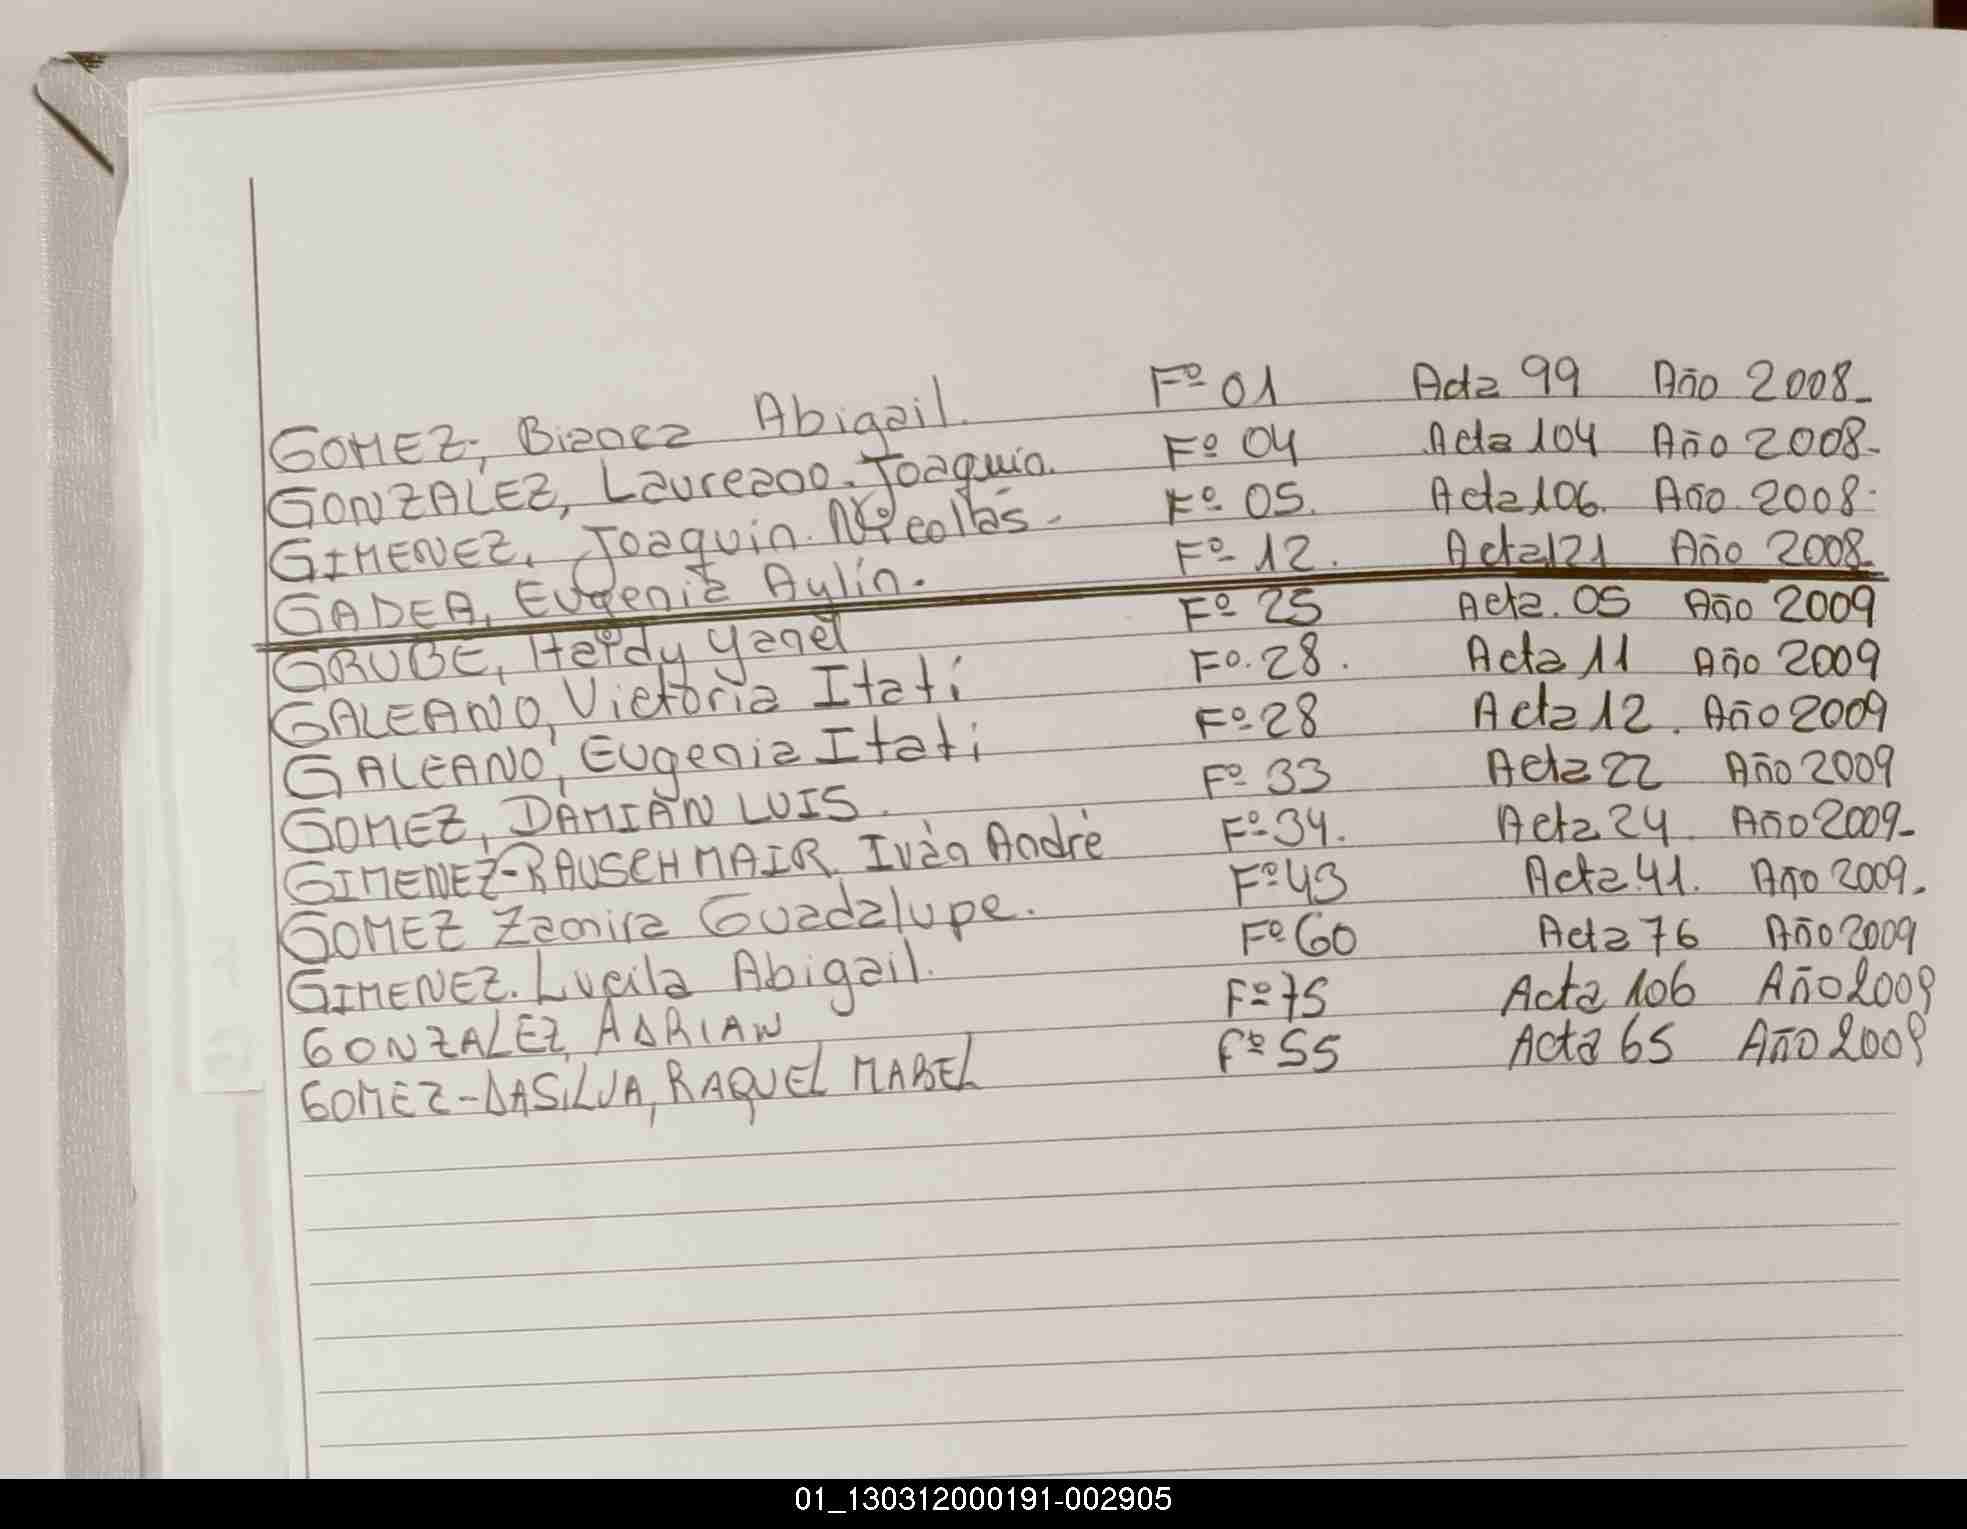 GOMEZ, Bianca Abigail. Fº 01 Acta 99 Año 2008-
GONZALEZ, Laureano Joaquín. Fº 04 Acta 104 Año 2008-
GIMENEZ, Joaquín Nicolás - Fº 05. Acta 106. Año 2008-
GADEA, Eugenia Aylín. Fº 12. Acta 121 Año 2008
GRUBE, Heidy Yanel Fº 25 Acta. 05 Año 2009
GALEANO, Victoria Itatí Fº. 28. Acta 11 Año 2009
GALEANO, Eugenia Itatí Fº 28 Acta 12. Año 2009
GOMEZ, DAMIÁN LUIS. Fº 33 Acta 22 Año 2009
GIMENEZ-RAUSCHMAIR, Iván André Fº 34. Acta 24 Año 2009-
GOMEZ Zamira Guadalupe. Fº 43 Acta 41. Año 2009.
GIMENEZ. Lucila Abigail. Fº 60 Acta 76 Año 2009
GONZALEZ, ADRIAN Fº 75 Acta 106 Año 2009
GOMEZ-DASILVA, RAQUEL MABEL Fº 55 Acta 65 Año 2009
01_130312000191-002905